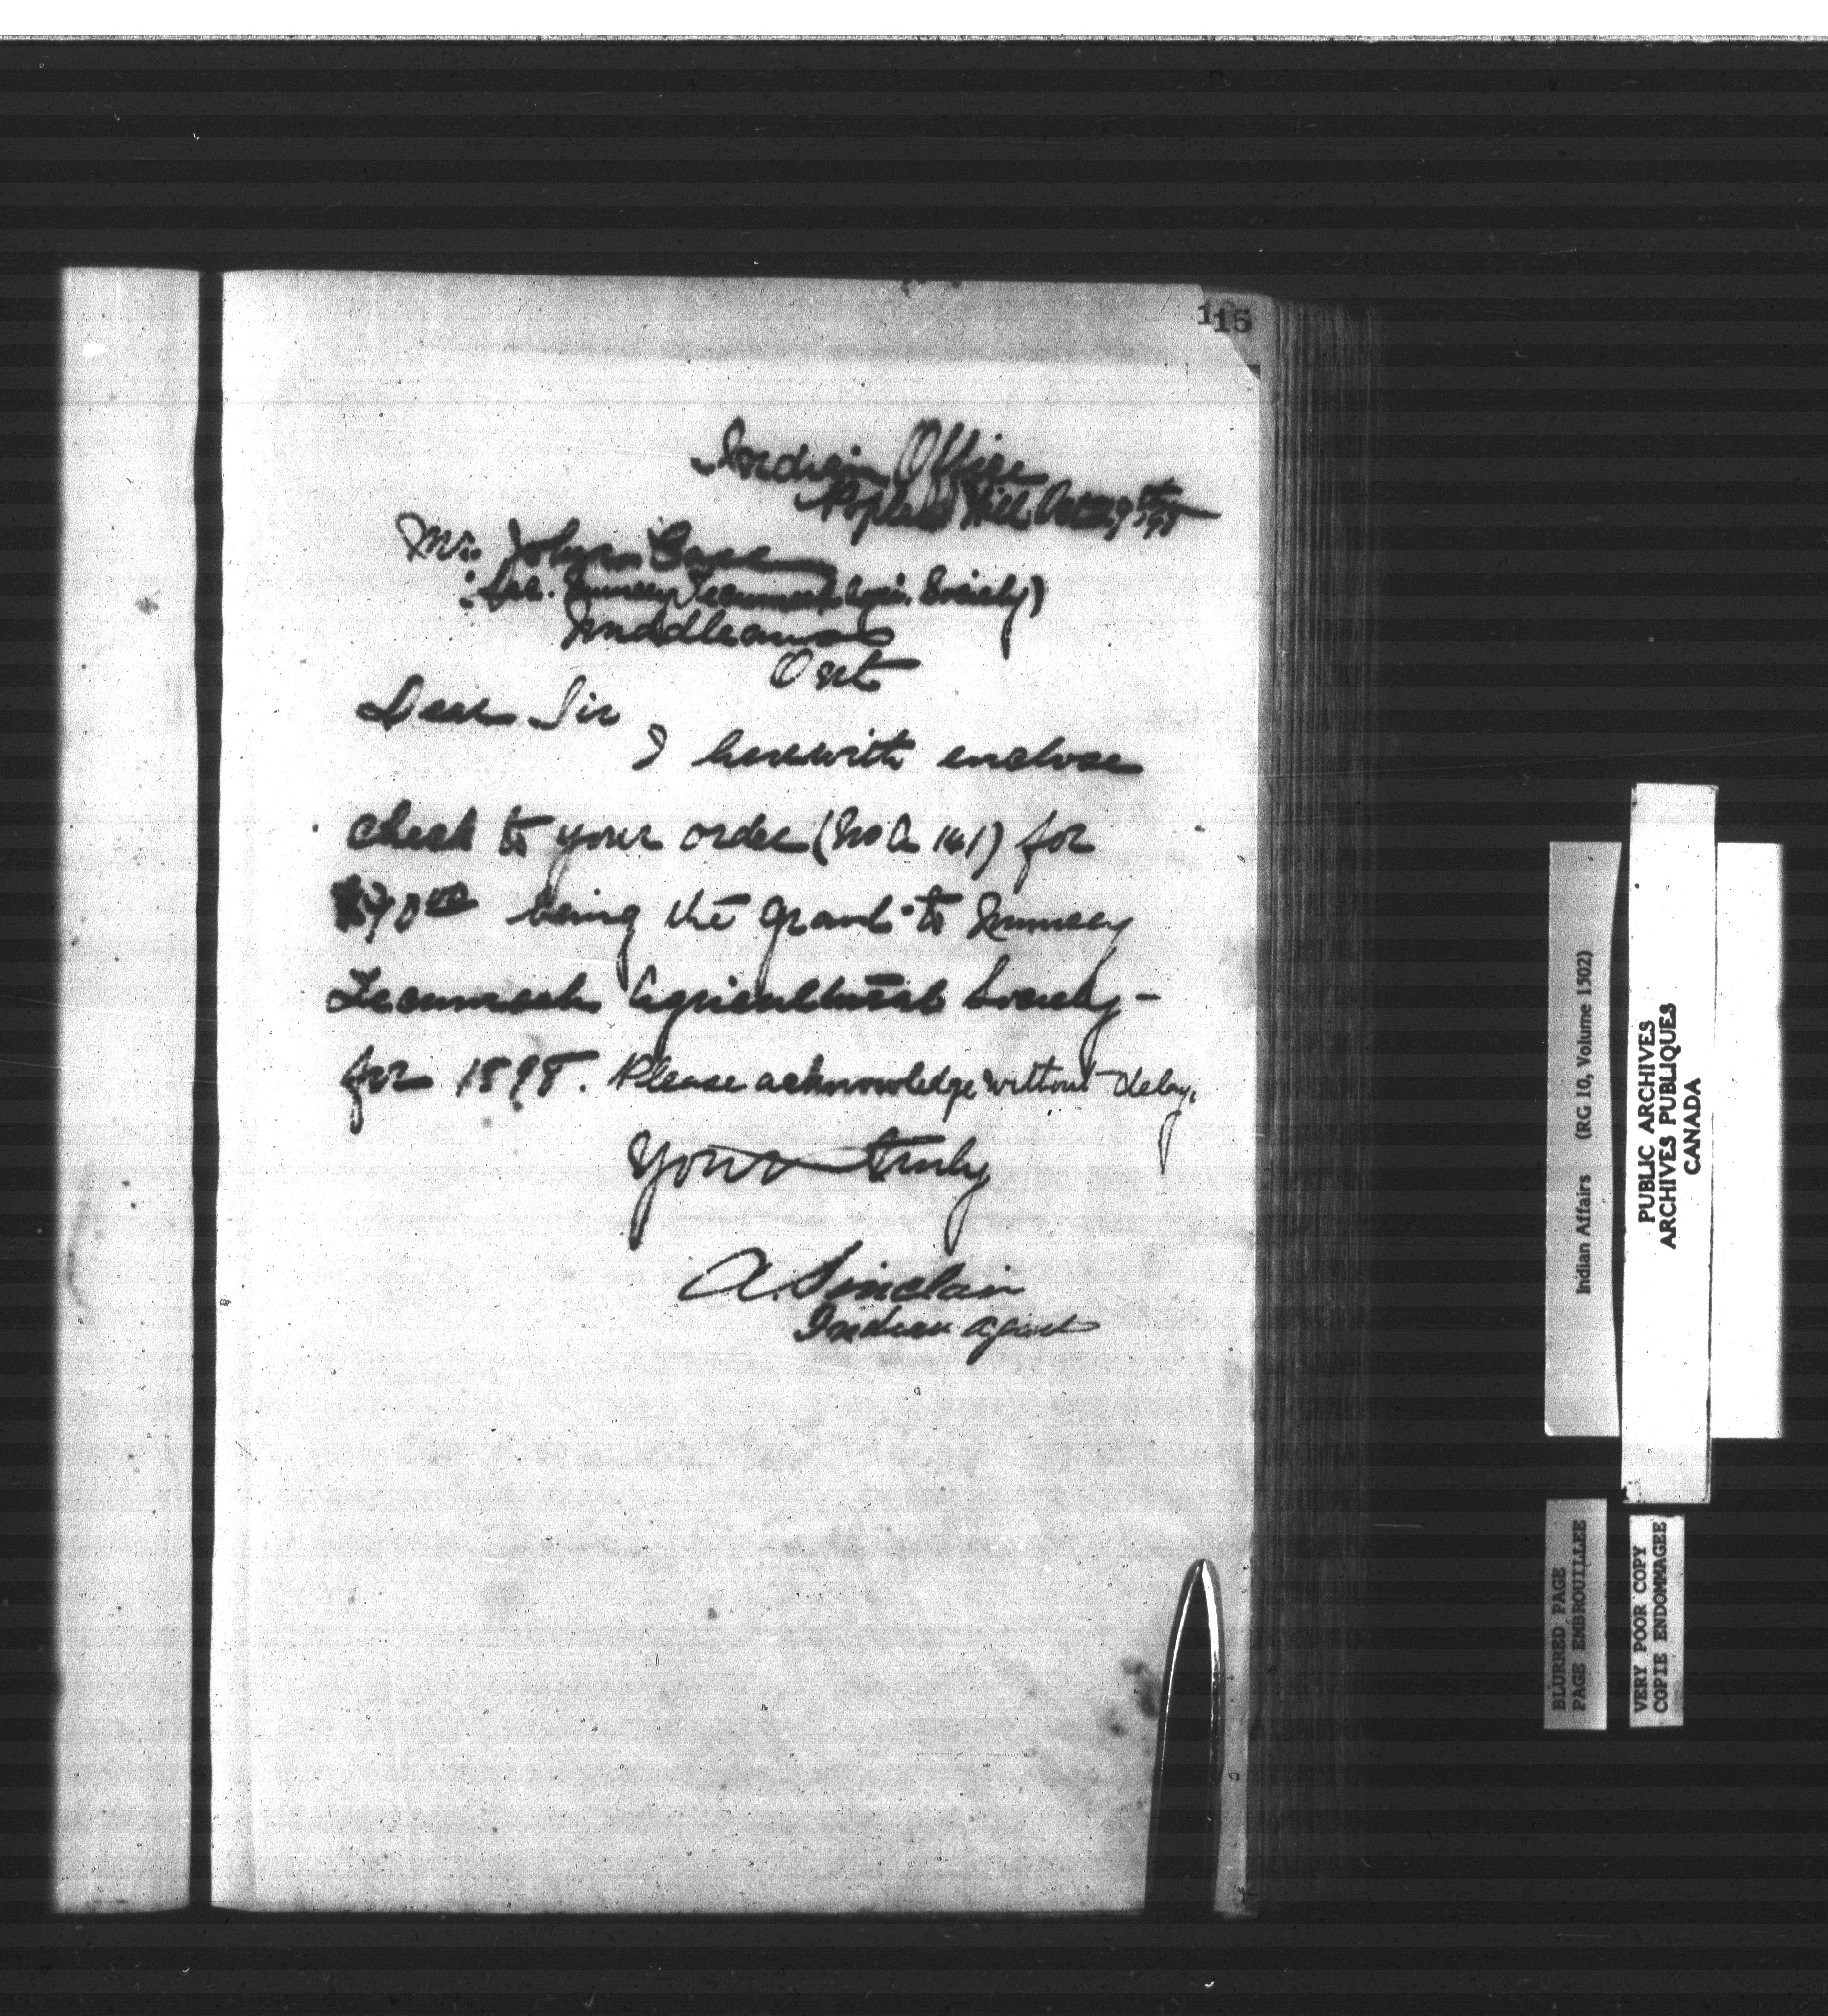 115
Indian Office
Poplar Hill Oct 29th 98
Mr. John Case
(Sec. Muncey Tecumseh Agri. Society)
Middlemiss
Ont
Dear Sir
I herewith enclose
check to your order (No A 141) for
being the grant to Muncey
Tecumseh Agricultural Society -
for 1898. Please acknowledge without delay.
Yours truly
A. Sinclair
Indian Agent
Indian Affairs (RG 10, Volume 1502)
PUBLIC ARCHIVES
ARCHIVES PUBLIQUES
CANADA
BLURRED PAGE
PAGE EMBROUILLEE
VERY POOR COPY
COPIE ENDOMMAGEE